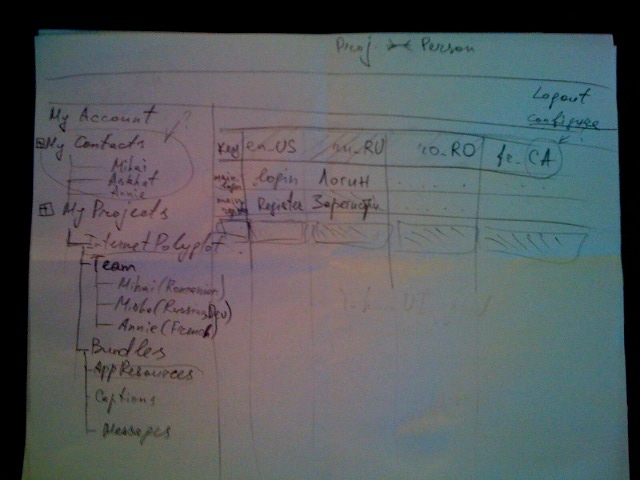 Proj. Person
Logout
configure
My Account ?
My Contacts
Mihai
Askhat
Annie
My Projects
Internet Polyglot
Team
Mihai (Romanian)
Misha (Russian, Dev)
Annie (French)
Bundles
App Resources
Captions
Messages
Key en_US ru_RU ro_RO fr_CA
login Логин
Register